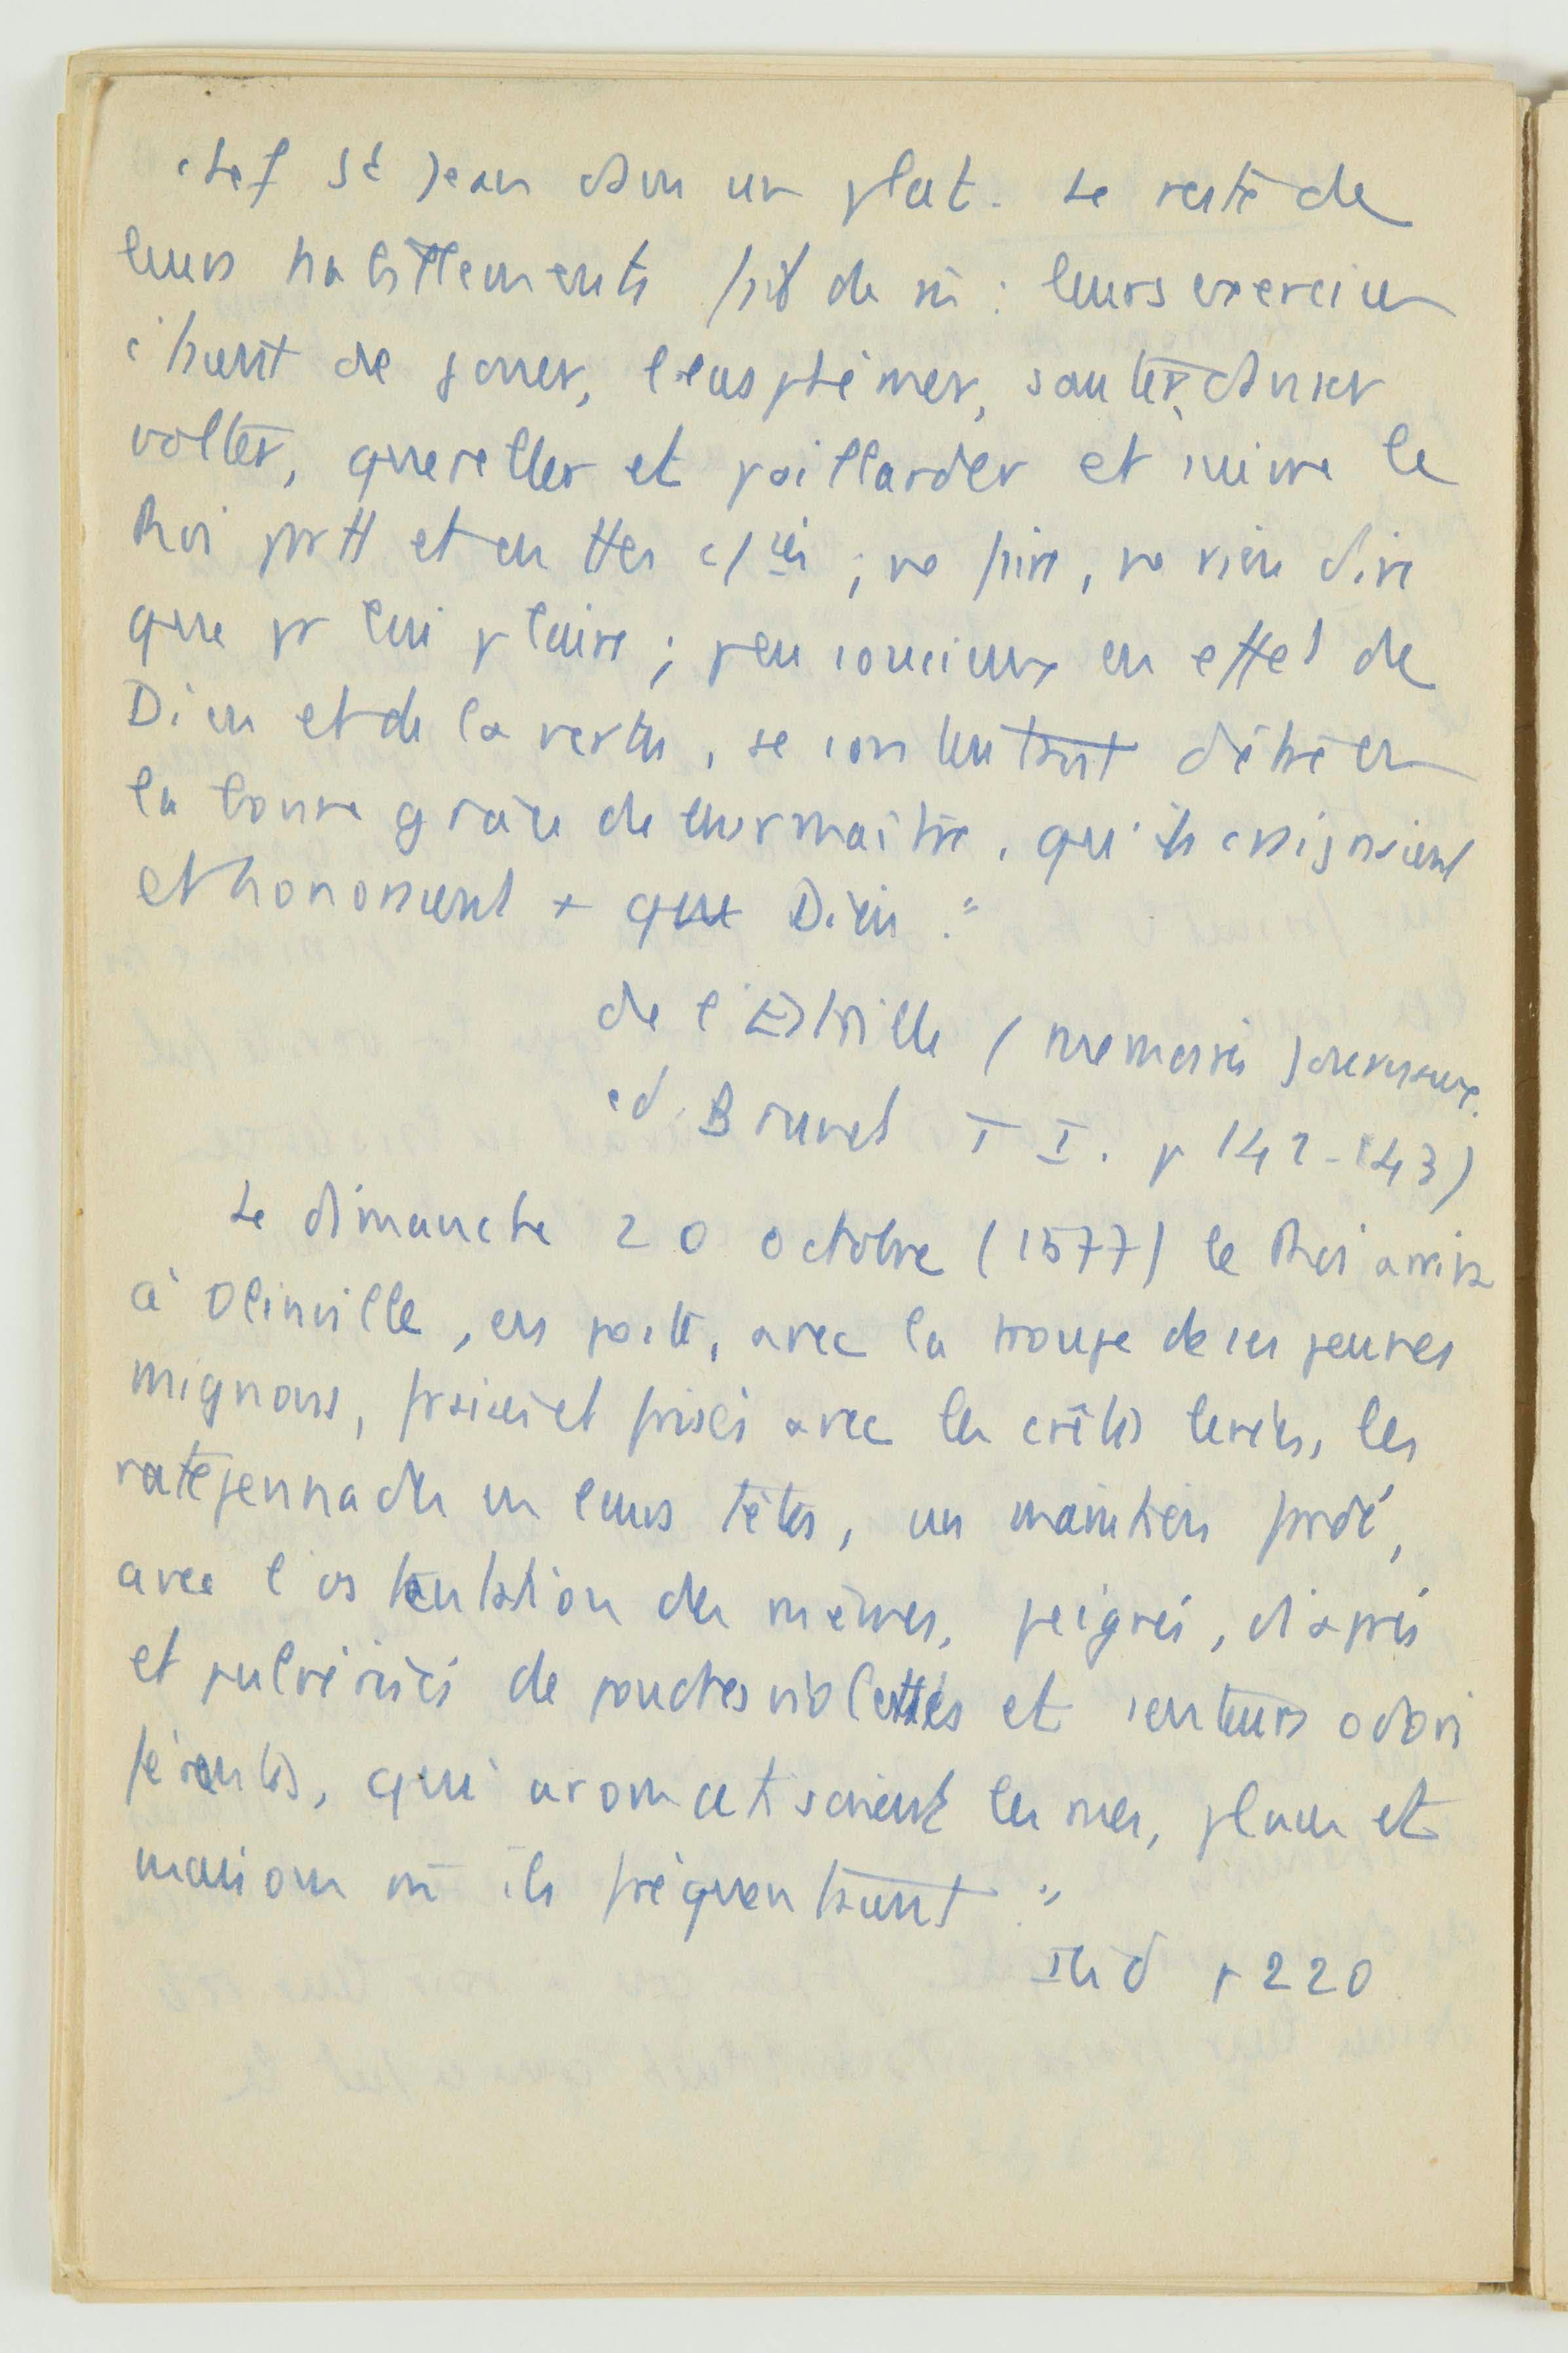 chef St Jean dans un plat. Le reste de
leurs habillements fait de m : leurs exercices
étaient de jouer, blasphémer, sauter, danser
volter, quereller et paillarder et suivre le
Roi part et en ttes ch ; ne faire, ne rien dire
que pr lui plaire ; peu soucieux en effet de
Dieu et de la vertu, se contentant d'être en
la bonne grâce de leur maître, qu'ils craignaient
et honoraient + que Dieu."
de l'Estoille (memoires journaux.
ed. Brunet T I. p 142-143)
Le dimanche 20 octobre (1577) le Roi arriva
à Olinville, en poste, avec la troupe de ses jeunes
mignons, fraisés et frisés avec les crêtes levées, les
ratepennades en leurs têtes, un maintien fardé,
avec l'ostentation de mêmes, peignés, diaprés
et pulvérisés de poudres violettes et senteurs odori
férentes, qui aromatisaient les rues, places et
maisons où ils fréquentaient."
Ibid p 220